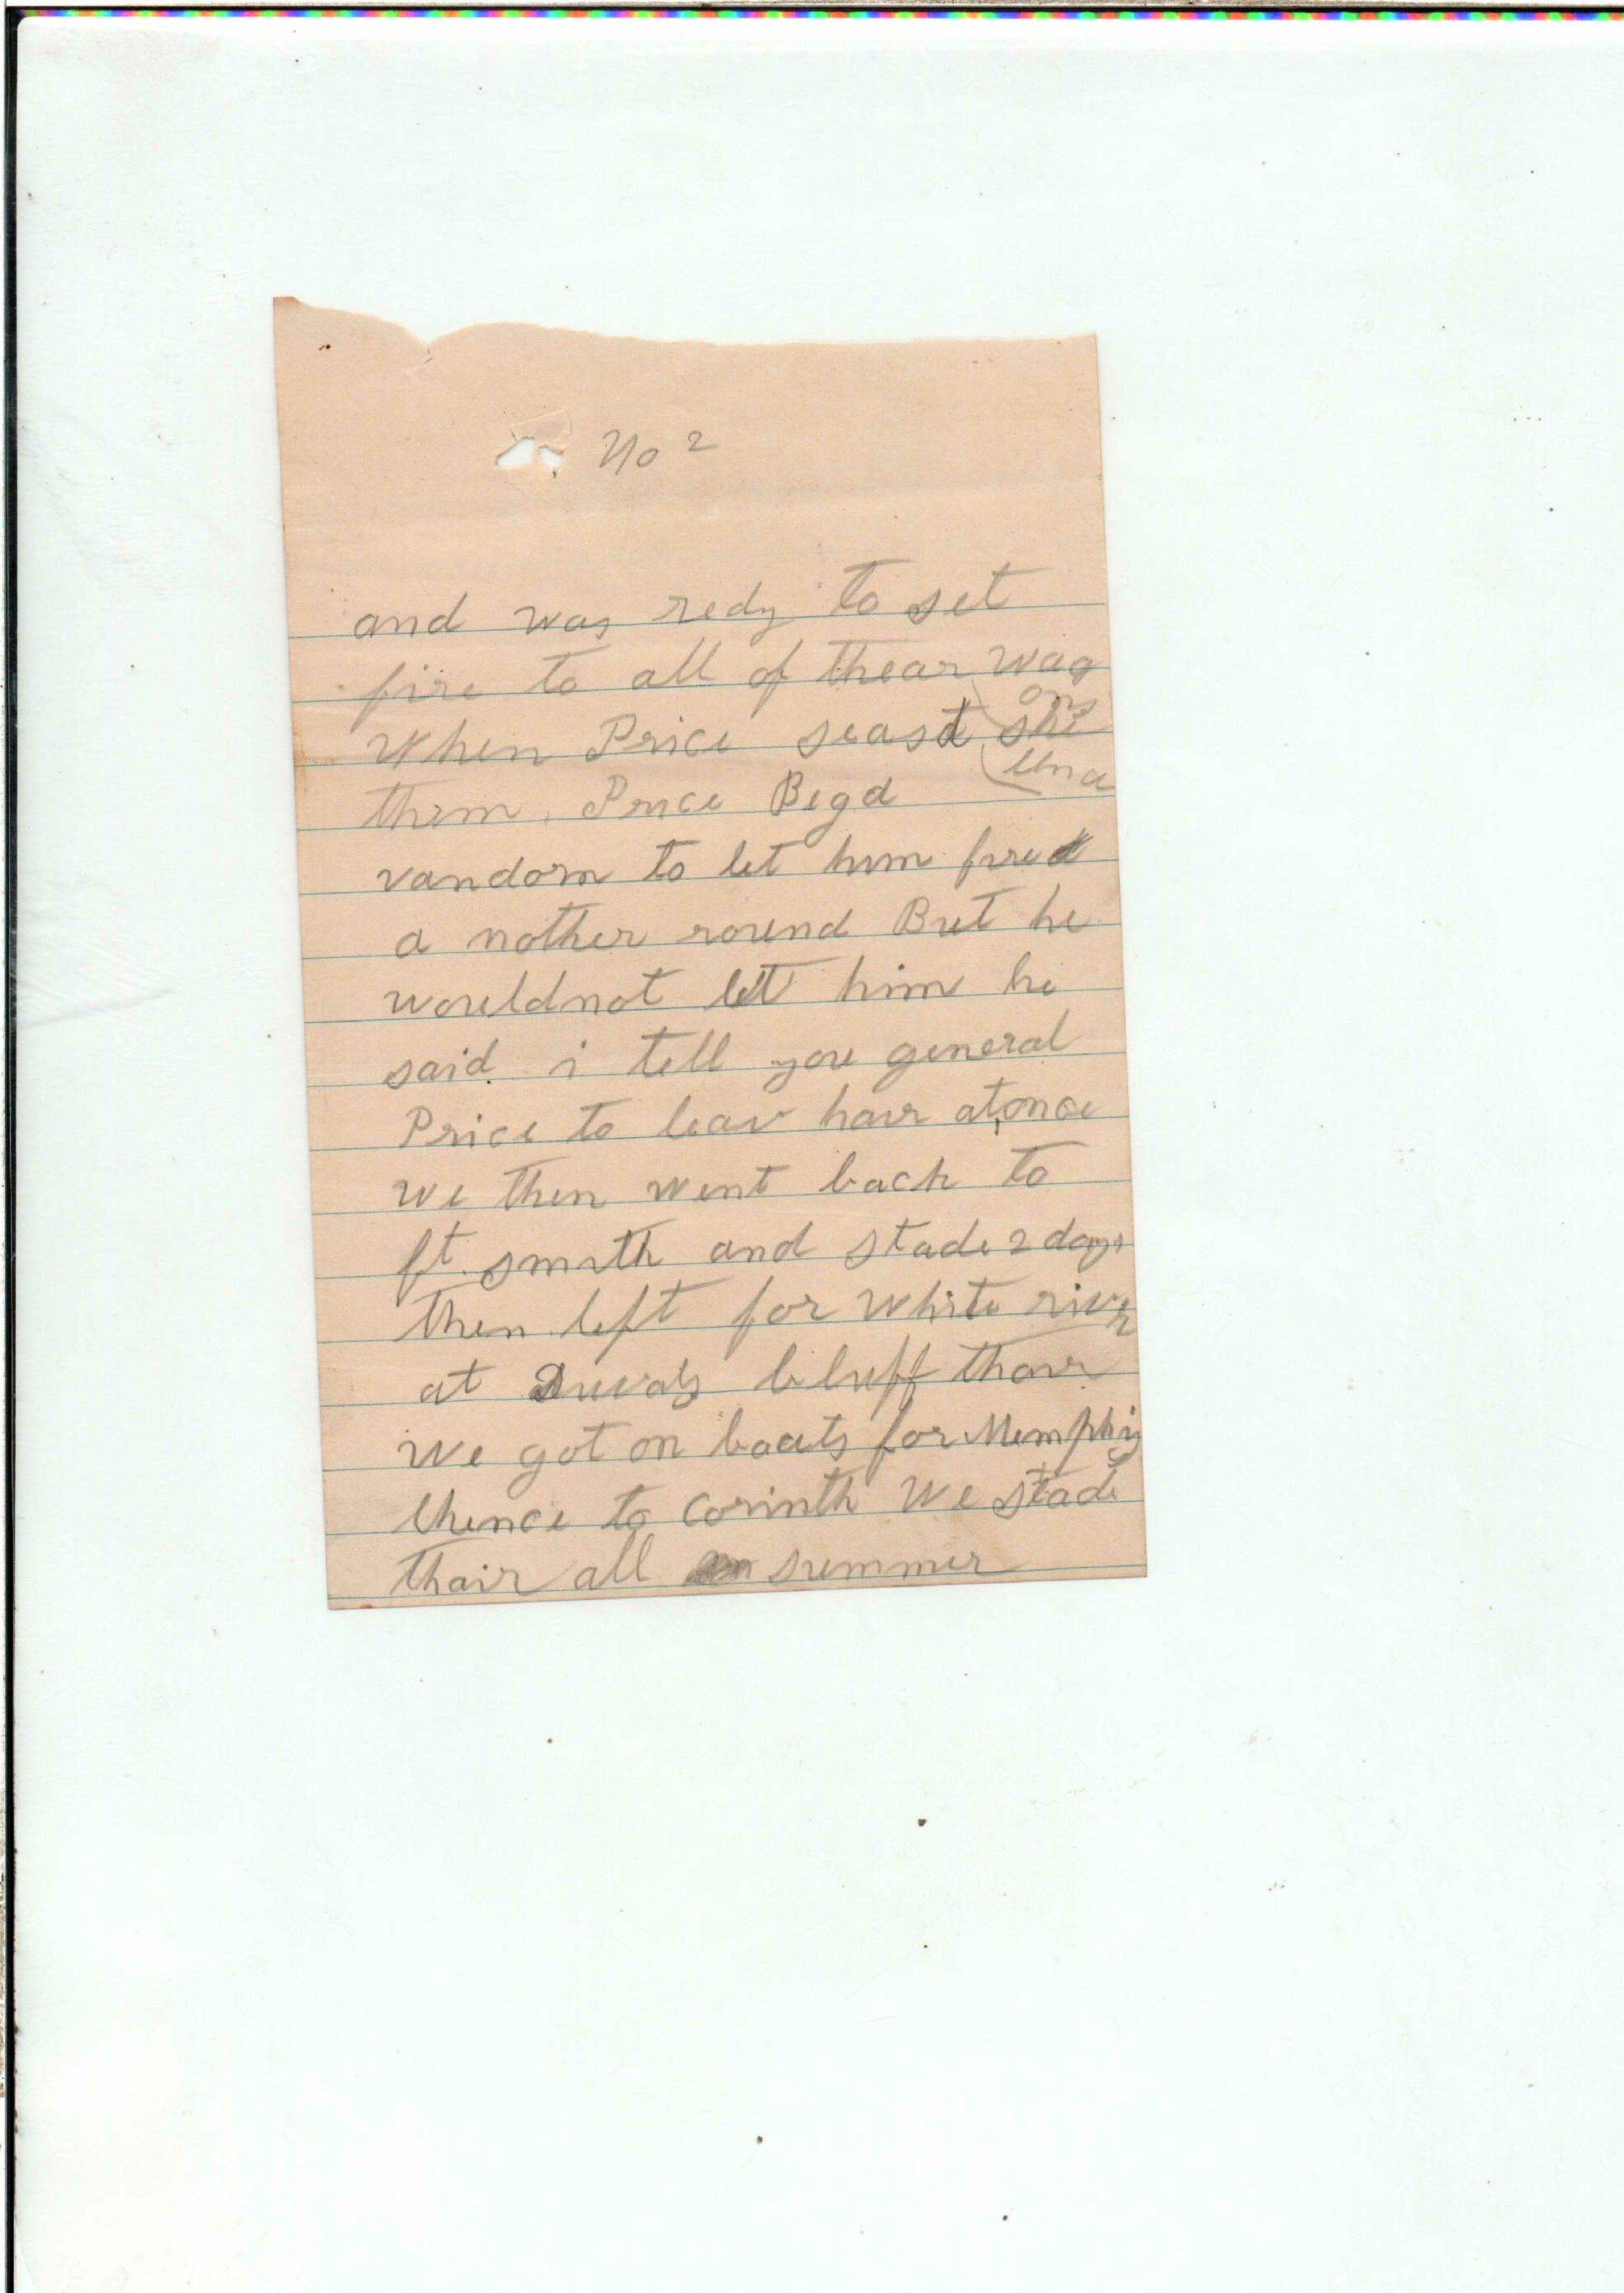 No 2
and was redy to set
fire to all of thear wag
ons
When Price seast she
lling
them. Price Begd
vandorn to let him fire
a nother round But he
wouldnot let him he
said i tell you general
Price to leav hair atonce
we then went back to
ft. smith and stade 2 days
then left for white river
at Duvals bluff thair
We got on boats for Memphis
thence to corinth We stade
thair all summer